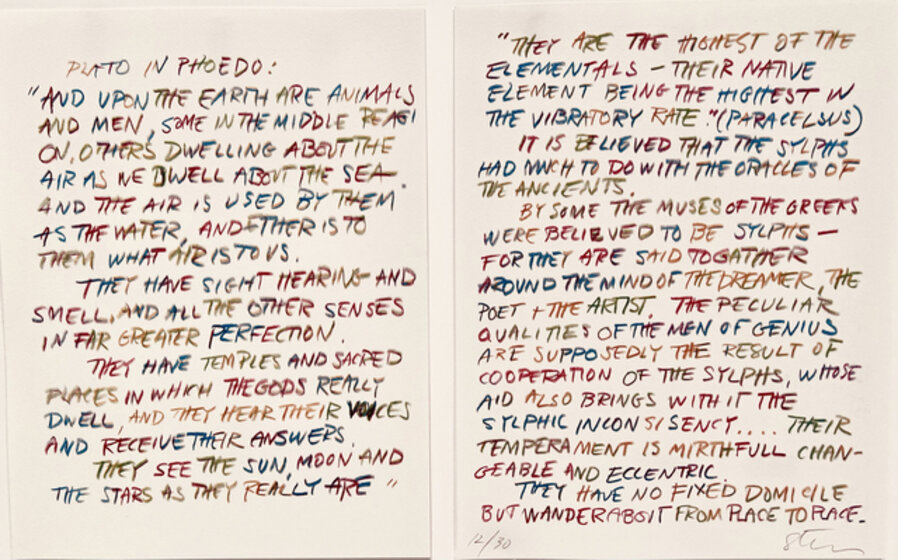 PLATO IN PHOEDO:
"AND UPON THE EARTH ARE ANIMALS
AND MEN, SOME IN THE MIDDLE REAGI
ON, OTHERS DWELLING ABOUT THE
AIR AS WE DWELL ABOUT THE SEA.
AND THE AIR IS USED BY THEM
AS THE WATER, AND ETHER IS TO
THEM WHAT AIR IS TO US.
THEY HAVE SIGHT HEARING AND
SMELL, AND ALL THE OTHER SENSES
IN FAR GREATER PERFECTION.
THEY HAVE TEMPLES AND SACRED
PLACES IN WHICH THE GODS REALLY
DWELL, AND THEY HEAR THEIR VOICES
AND RECEIVE THEIR ANSWERS.
THEY SEE THE SUN, MOON AND
THE STARS AS THEY REALLY ARE"
"THEY ARE THE HIGHEST OF THE
ELEMENTALS – THEIR NATIVE
ELEMENT BEING THE HIGHEST IN
THE VIBRATORY RATE." (PARACELSUS)
IT IS BELIEVED THAT THE SYLPHS
HAD MUCH TO DO WITH THE ORACLES OF
THE ANCIENTS.
BY SOME THE MUSES OF THE GREEKS
WERE BELIEVED TO BE SYLPHS –
FOR THEY ARE SAID TO GATHER
AROUND THE MIND OF THE DREAMER, THE
POET + THE ARTIST. THE PECULIAR
QUALITIES OF THE MEN OF GENIUS
ARE SUPPOSEDLY THE RESULT OF
COOPERATION OF THE SYLPHS, WHOSE
AID ALSO BRINGS WITH IT THE
SYLPHIC INCONSISENCY.... THEIR
TEMPERAMENT IS MIRTHFULL CHAN-
GEABLE AND ECCENTRIC.
THEY HAVE NO FIXED DOMICILE
BUT WANDER ABOUT FROM PLACE TO PLACE.
12/30